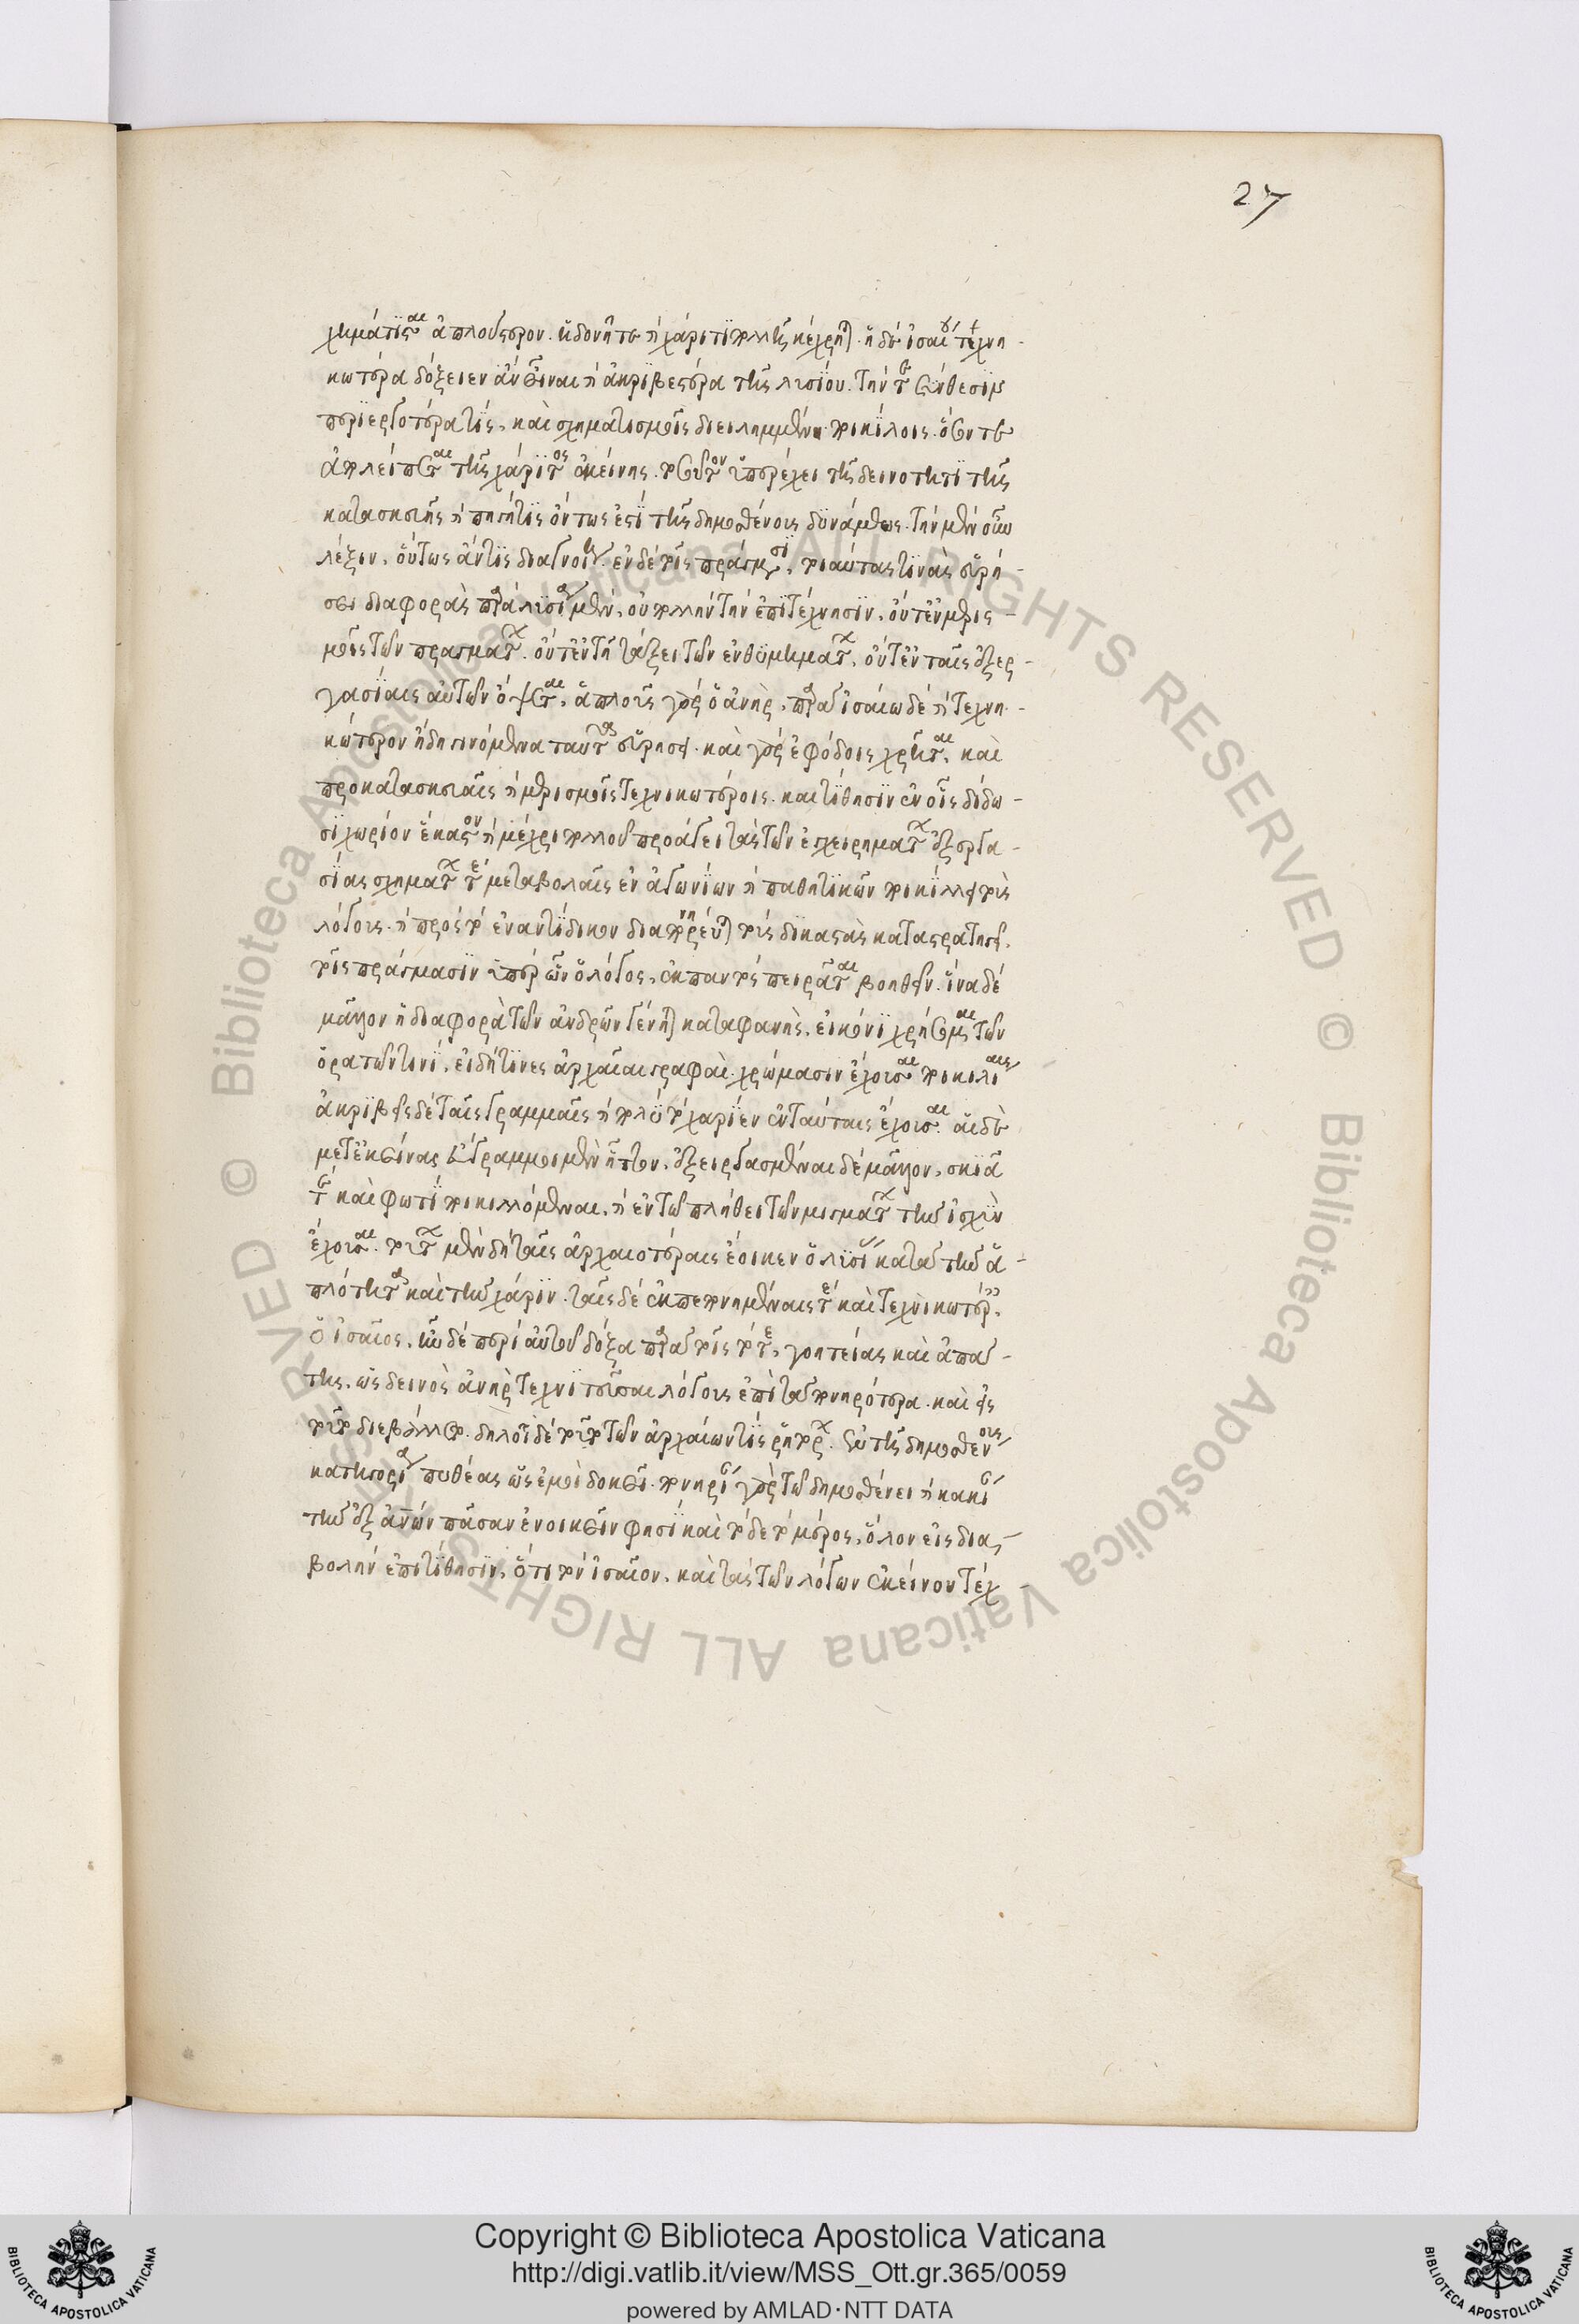 27
χημάτισται ἁπλούστερον. ἡδονῆ τε καὶ χάριτι πολλῆ κέχρηται. ἡ δὲ ἰσαίου τεχνι-
κωτέρα δόξειεν ἂν εἶναι καὶ ἀκριβεστέρα τῆς λυσίου. τήν τε σύνθεσιν
περιεργοτέρα τίς, καὶ σχηματισμοῖς διειλημμένη ποικίλοις. ὅσόν τε
ἀπολείπεται τῆς χάριτος ἐκείνης. τοσοῦτον ὑπερέχει τῆ δεινότητι τῆς
κατασκευῆς καὶ πηγή τις ὄντως ἐστὶ τῆς δημοσθένους δυνάμεως. τὴν μὲν οὖν
λέξιν, οὕτως ἄν τις διαγνοίη. ἐν δὲ τοῖς πράγμασι, τοιαύτας τινὰς εὑρή-
σει διαφορὰς παρὰ λυσία μὲν, οὐ πολλὴν τὴν ἐπιτέχνησιν, οὔτ' ἐν μερισ-
μοῖς τῶν πραγμάτων. οὔτ' ἐν τῆ τάξει τῶν ἐνθυμημάτων, οὔτ' ἐν ταῖς ἐξερ-
γασίαις αὐτῶν ὄψεται, ἁπλοῦς γὰρ ὁ ἀνὴρ, παρὰ ἰσαίω δὲ καὶ τεχνι-
κώτερον ἤδη γινόμενα ταῦτα εὑρήσει. καὶ γὰρ ἐφόδοις χρῆται, καὶ
προκατασκευαῖς καὶ μερισμοῖς τεχνικωτέροις. καὶ τίθησιν ἐν οἷς δίδω-
σι χωρίον ἕκαστον καὶ μέχρι πολλοῦ προάγει τὰς τῶν ἐπιχειρημάτων ἐξεργα-
σίας σχημάτων τέ μεταβολαῖς ἐναγωνίων καὶ παθητικῶν ποικίλλει τοὺς
λόγους. καὶ πρὸς τὸ ἐναντίδικον διαπονηρεύεται τοὺς δικαστὰς καταστρατηγεῖ.
τοῖς πράγμασιν ὑπὲρ ὧν ὁ λόγος, ἐκ παντὸς πειρᾶται βοηθεῖν. ἵνα δὲ
μᾶλλον ἡ διαφορὰ τῶν ἀνδρῶν γένηται καταφανὴς, εἰκόνι χρήσομαι τῶν
ὁρατῶν τινί, εἰσὶ δή τινες ἀρχαῖαι γραφαὶ. χρώμασιν ἔχουσαι ποικιλίαις
ἀκριβεῖς δὲ ταῖς γραμμαῖς καὶ πολὺ τὸ χαρίεν ἐν ταύταις ἔχουσαι. αἱ δὲ
μετ' ἐκείνας εὔγραμμοι μὲν ἧττον, ἐξειργασμέναι δὲ μᾶλλον, σκιᾶ
τε καὶ φωτὶ ποικιλλόμεναι, καὶ ἐν τῶ πλήθει τῶν μιγμάτων τὴν ἰσχὺν
ἔχουσαι. τούτων μὲν δὴ ταῖς ἀρχαιοτέραις ἔοικεν ὁ λυσίας κατὰ τὴν ἁ-
πλότητα καὶ τὴν χάριν. ταῖς δὲ ἐκπεπονημέναις τέ καὶ τεχνικωτέραις
ὁ ἰσαῖος. ἦν δὲ περὶ αὐτοῦ δόξα παρὰ τοῖς τότε, γοητείας καὶ ἀπά-
της, ὡς δεινὸς ἀνὴρ τεχνιτεῦσαι λόγους ἐπὶ τὰ πονηρότερα. καὶ εἰς
τοῦτο διεβάλλετο. δηλοῖ δὲ τοῦτο τῶν ἀρχαίων τὶς ῥητόρων. ἐν τῆ δημοσθένους
κατηγορία πυθέας ὡς ἐμοὶ δοκεῖ. πονηρίαν γὰρ τῶ δημοσθένει καὶ κακίαν
τὴν ἐξ ἀνθρώπων πᾶσαν ἐνοικεῖν φησὶ καὶ τόδε τὸ μέρος, ὅλον εἰς δια-
βολὴν ἐπιτίθησιν, ὅτι τὸν ἰσαῖον, καὶ τὰς τῶν λόγων ἐκείνου τέχ-
Copyright © Biblioteca Apostolica Vaticana
http://digi.vatlib.it/view/MSS_Ott.gr.365/0059
powered by AMLAD·NTT DATA